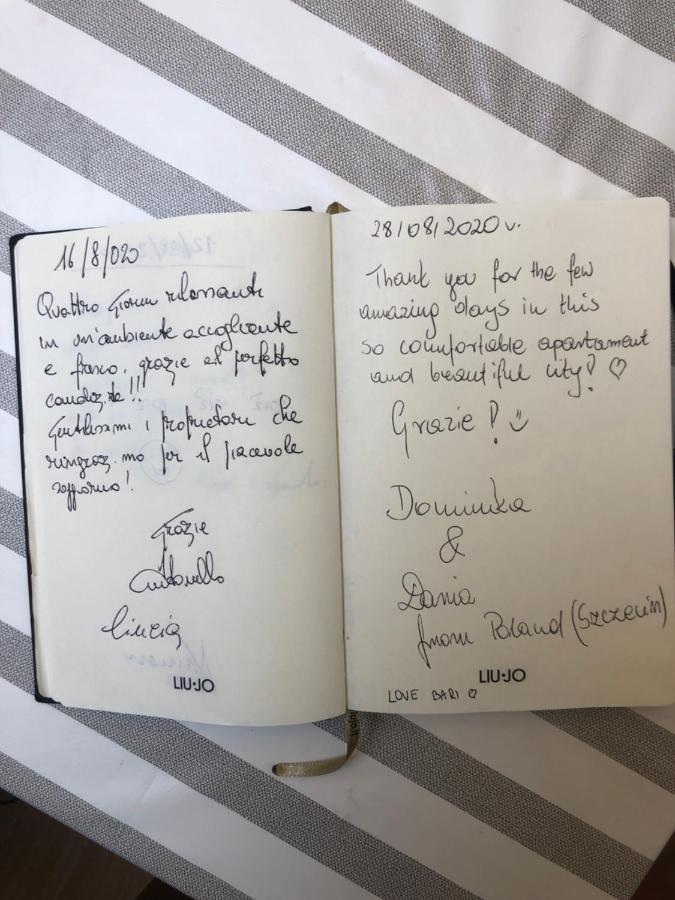 16/8/020
Quattro giorni rilassanti
in un'ambiente accogliente
e fresco, grazie al perfetto
condiz.!!!
Gentilissimi i proprietari che
ringraz.mo per il piacevole
soggiorno!
Grazie
Antonello
Cinzia
LIU·JO
28/08/2020 r.
Thank you for the few
amazing days in this
so comfortable apartament
and beautiful city! ♡
Grazie! :)
Dominika
&
Daria
from Poland (Szczecin)
LIU·JO
LOVE BARI ♡